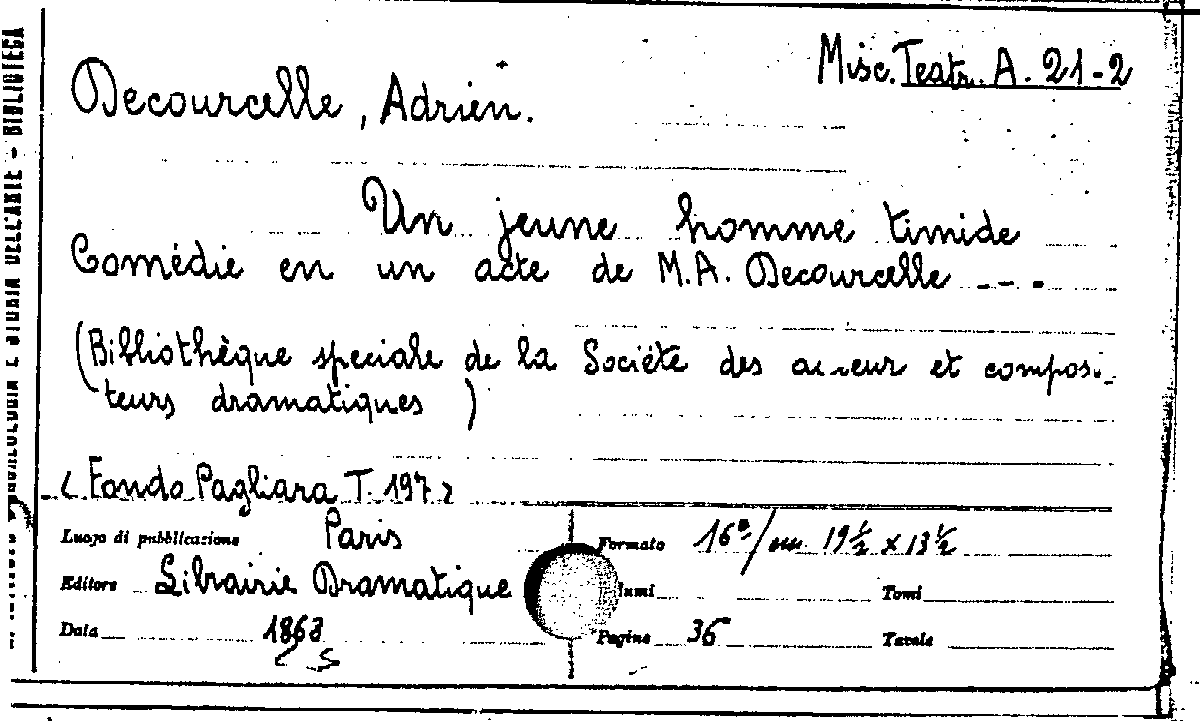 Misc. Teatr. A. 21-2
Decourcelle, Adrien.
Un jeune homme timide
Comédie en un acte de M.A. Decourcelle ---
(Bibliothèque speciale de la Société des et composi-
teurs dramatiques )
Fondo Pagliara T. 197
Luogo di pubblicazione Paris
Formato 16°/ 19 ½ x 13 ½
Editore Librairie Dramatique
Tomi
Data
Pagine 36
Tavole
BIBLIOTECA